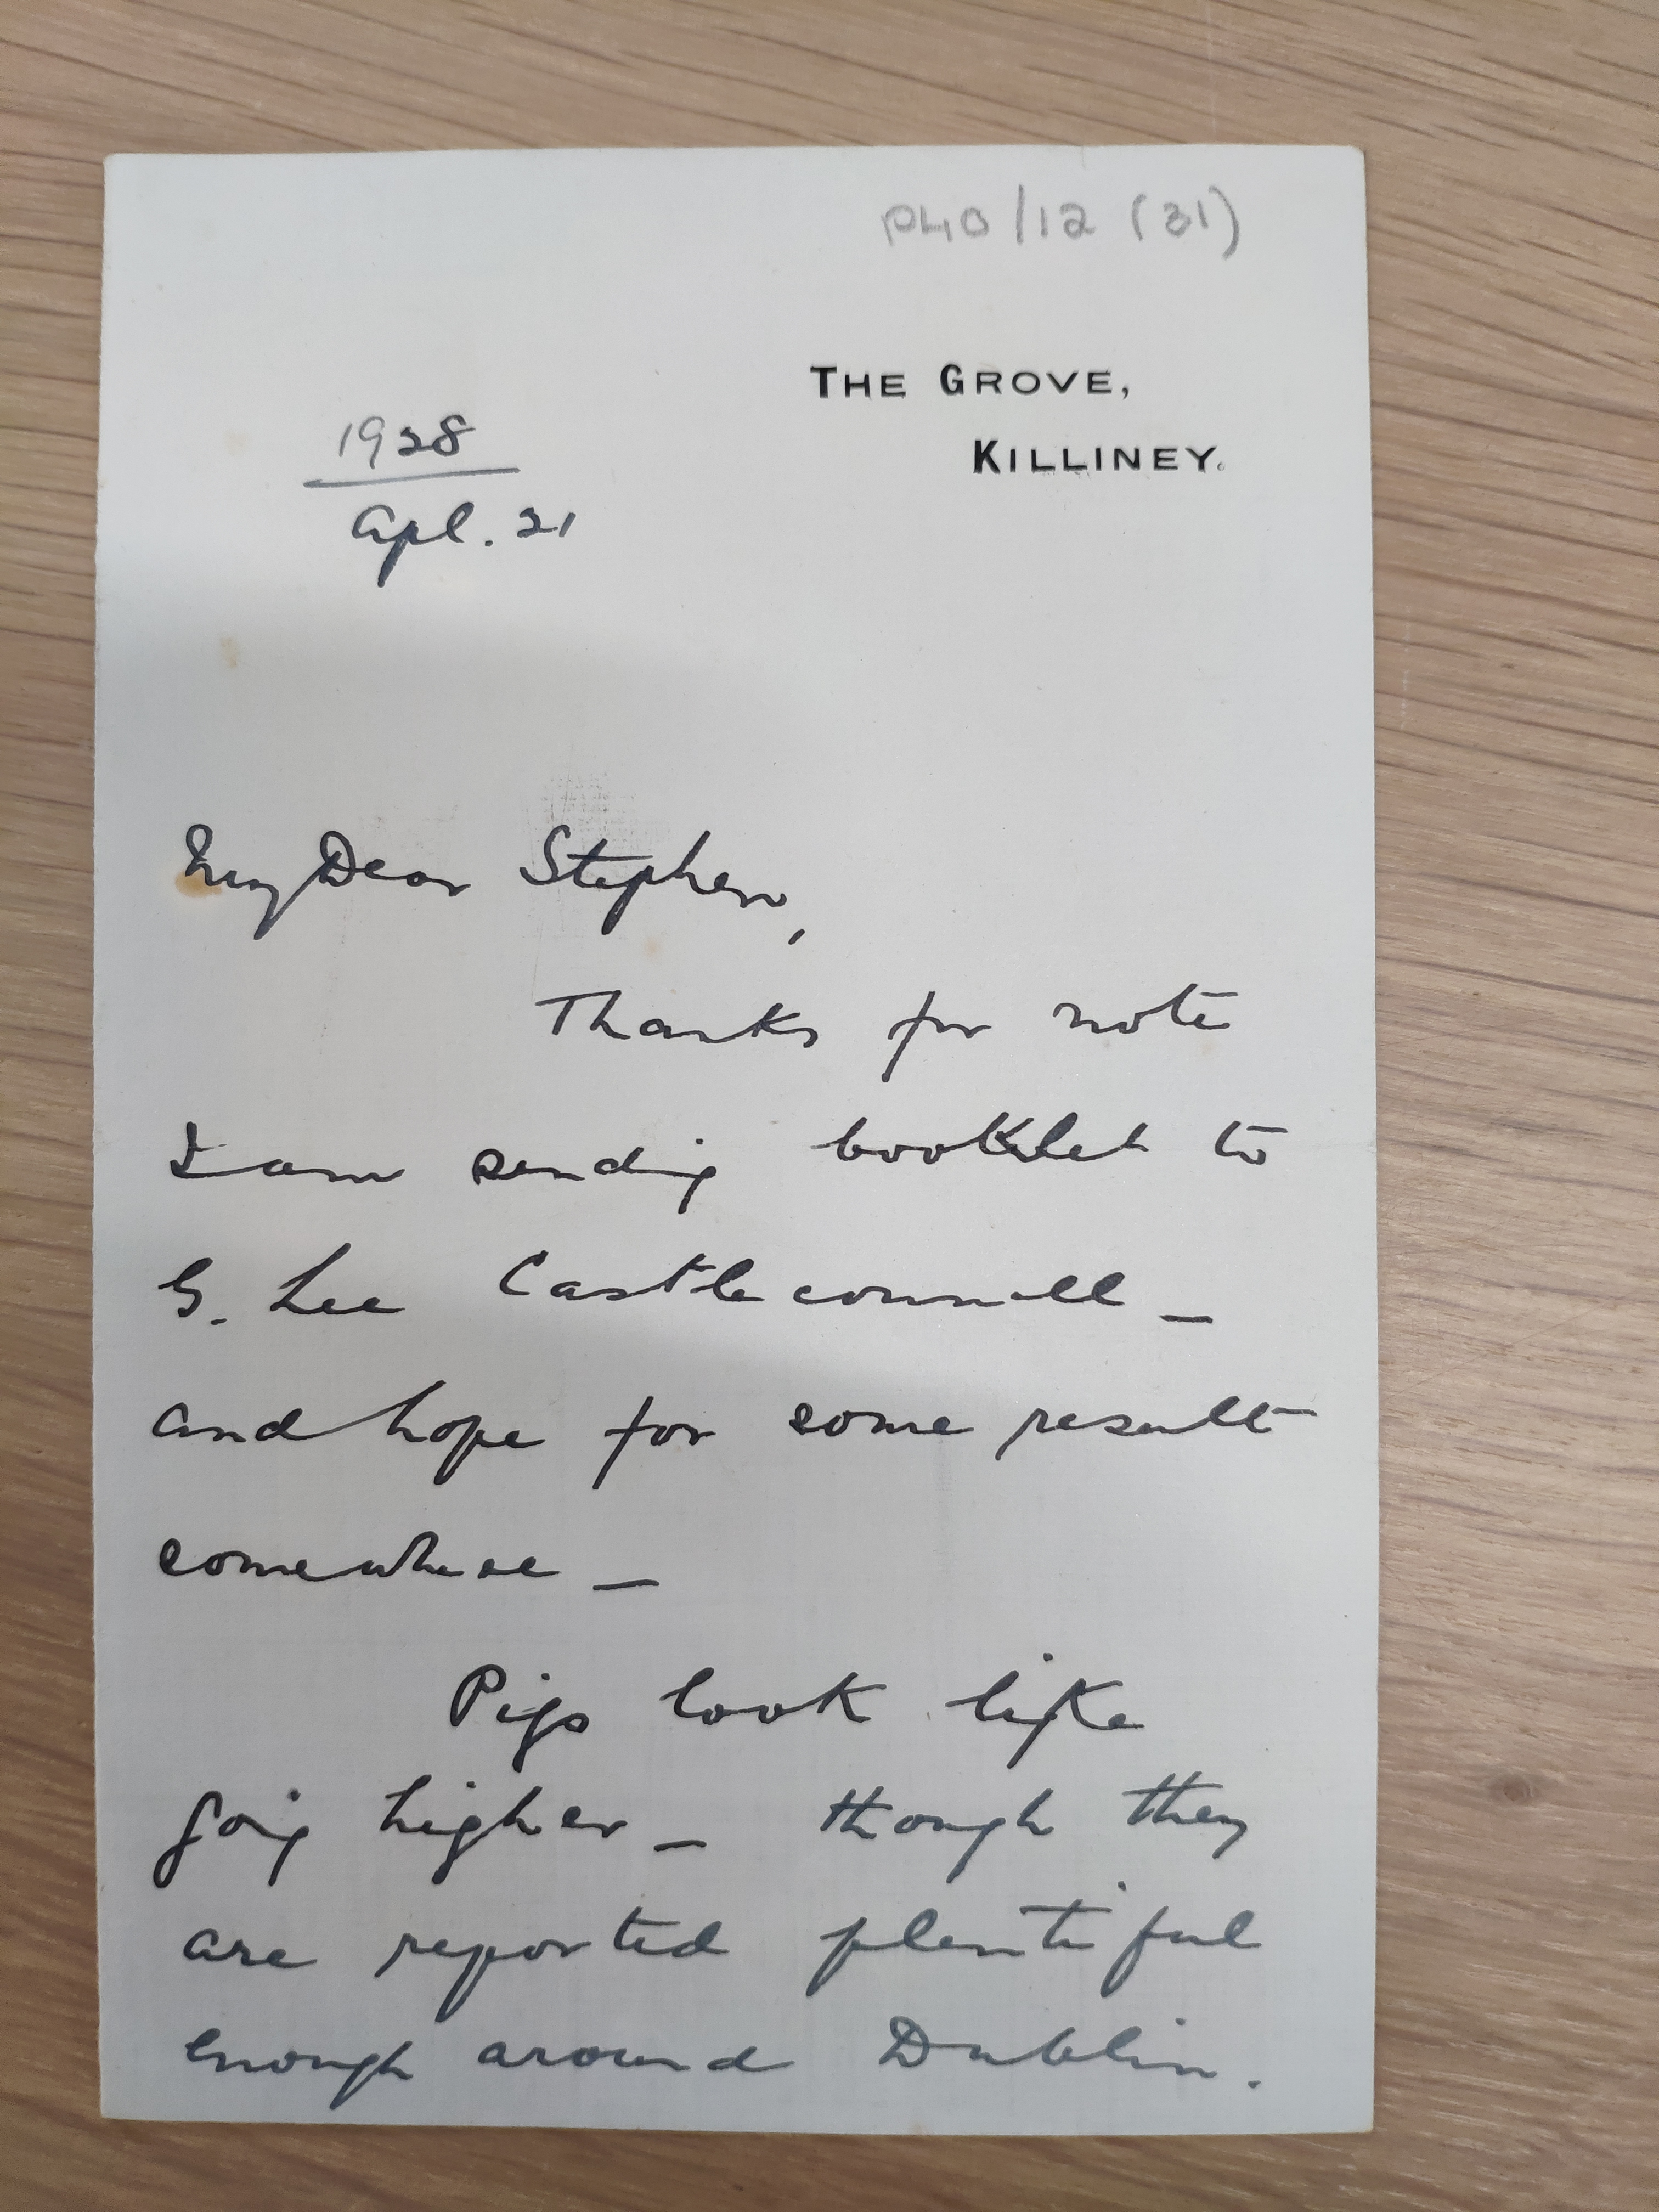 P40/12 (31)
THE GROVE,
KILLINEY.
1928
Apl. 21
My Dear Stephen,
Thanks for note
I am sending booklet to
G. Lee Castleconnell –
and hope for some result
somewhere –
Pigs look like
going higher – though they
are reported plentiful
enough around Dublin.